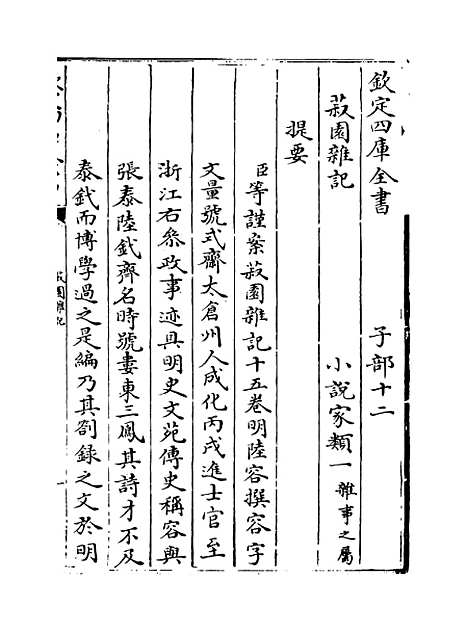 欽定四庫全書　子部十二
菽園雜記　小說家類一 雜事之屬
提要
臣等謹案菽園雜記十五卷明陸容撰容字
文量號式齋太倉州人成化丙戌進士官至
浙江右叅政事迹具明史文苑傳史稱容與
張泰陸釴齊名時號婁東三鳳其詩才不及
泰釴而博學過之是編乃其劄録之文於明
菽園雜記